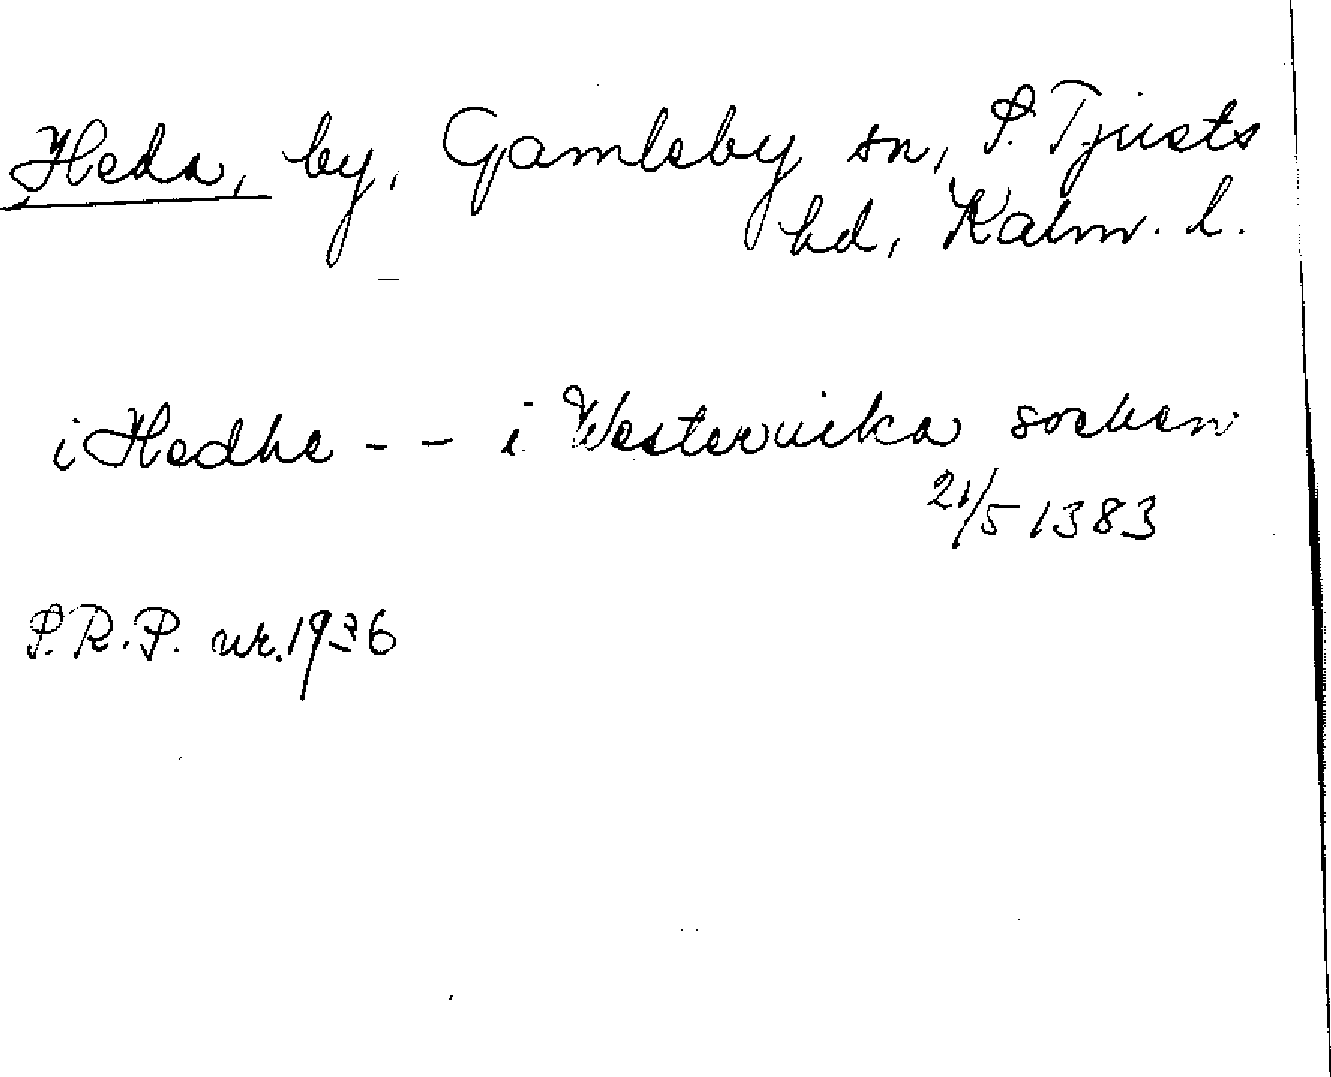 Heda, by, Gamleby sn, S. Tjusts
hd, Kalm. l.
i Hedhe - - i Westeruicka socken
21/5 1383
S.R.P. nr. 1936